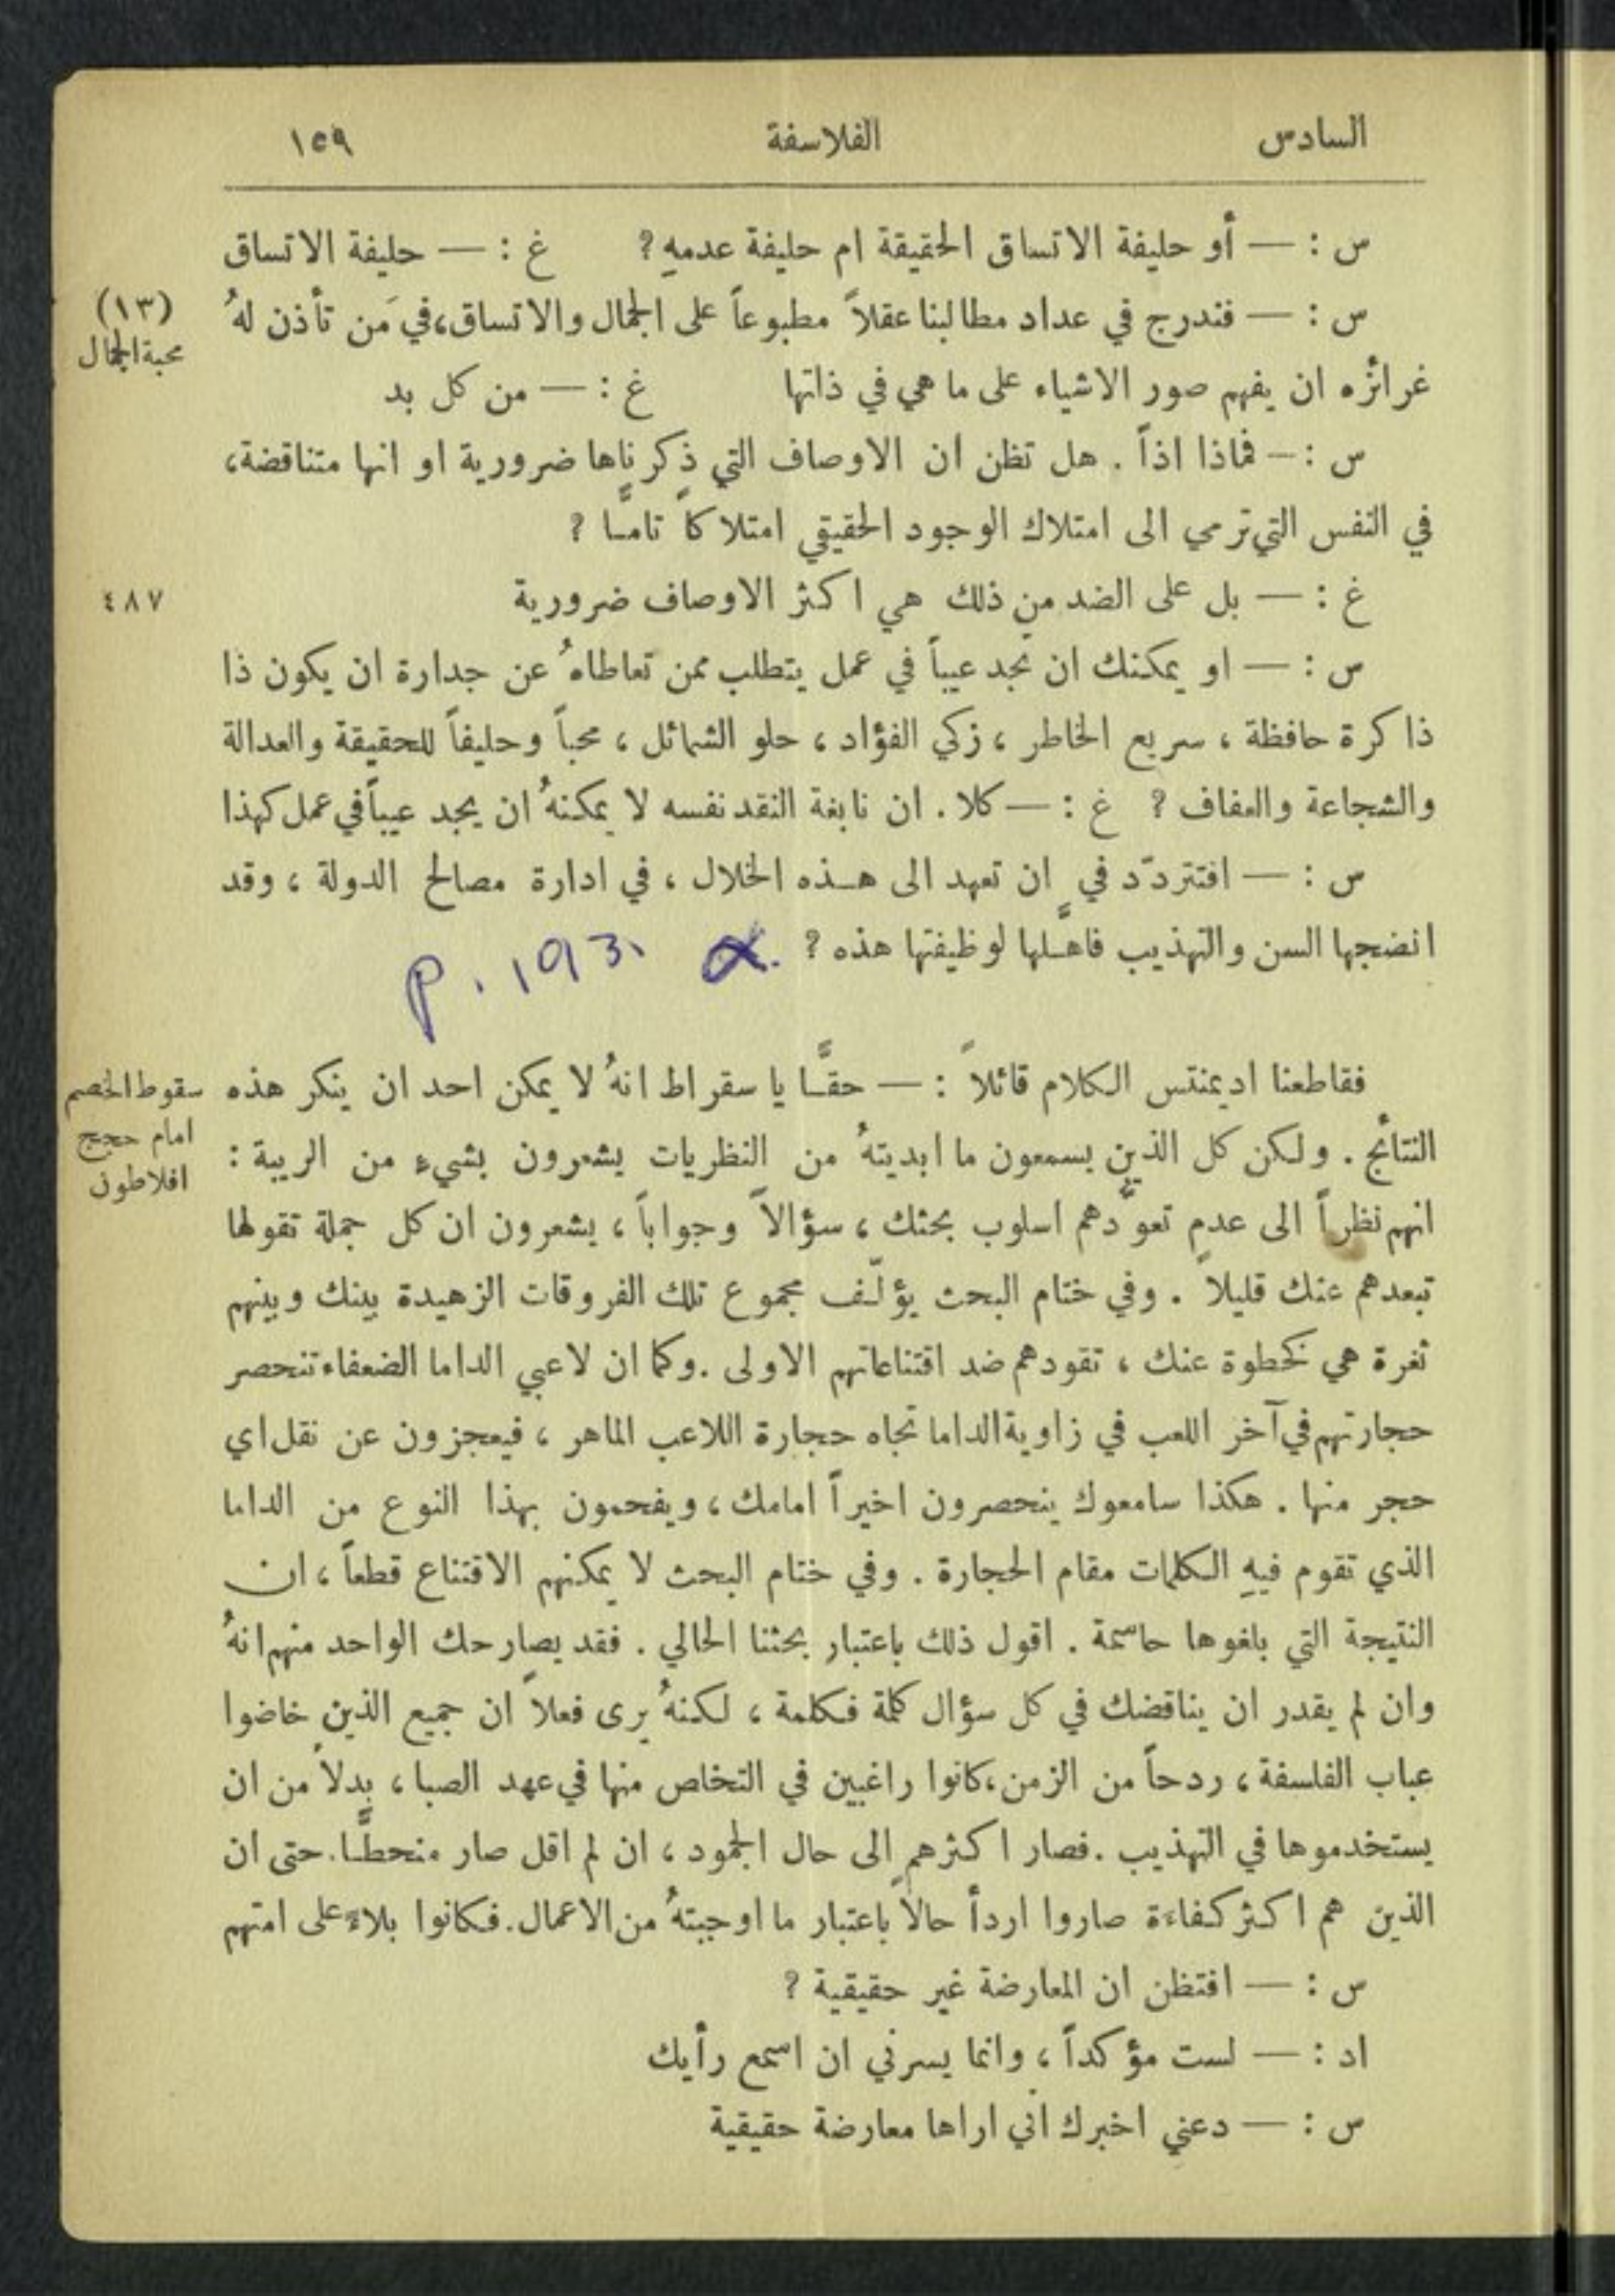 السادس الفلاسفة ١٥٩
س : — أو حليفة الاتساق الحقيقة ام حليفة عدمهِ ؟ غ : — حليفة الاتساق
س : — فندرج في عداد مطالبنا عقلاً مطبوعاً على الجمال والاتساق، في مَن تأذن لهُ
(١٣)
محبة الجمال
غرائزه ان يفهم صور الاشياء على ما هي في ذاتها غ : — من كل بد
س : — فماذا اذاً . هل تظن ان الاوصاف التي ذكرناها ضرورية او انها متناقضة،
في النفس التي ترمي الى امتلاك الوجود الحقيقي امتلاكاً تامًّا ؟
غ : — بل على الضد من ذلك هي اكثر الاوصاف ضرورية
٤٨٧
س : — او يمكنك ان تجد عيباً في عمل يتطلب ممن تعاطاهُ عن جدارة ان يكون ذا
ذاكرة حافظة ، سريع الخاطر ، زكي الفؤاد ، حلو الشمائل ، محباً وحليفاً للحقيقة والعدالة
والشجاعة والعفاف ؟ غ : — كلا . ان نابغة النقد نفسه لا يمكنهُ ان يجد عيباً في عمل كهذا
س : — افتتردّد في ان تعهد الى هذه الخلال ، في ادارة مصالح الدولة ، وقد
انضجها السن والتهذيب فاهَّلها لوظيفتها هذه ؟
p. 193.
فقاطعنا اديمنتس الكلام قائلاً : — حقًّا يا سقراط انهُ لا يمكن احد ان ينكر هذه
سقوط الخصم
امام حجج
افلاطون
النتائج . ولكن كل الذين يسمعون ما ابديتهُ من النظريات يشعرون بشيءٍ من الريبة :
انهم نظراً الى عدم تعوُّدهم اسلوب بحثك ، سؤالاً وجواباً ، يشعرون ان كل جملة تقولها
تبعدهم عنك قليلاً . وفي ختام البحث يؤلّف مجموع تلك الفروقات الزهيدة بينك وبينهم
ثغرة هي كخطوة عنك ، تقودهم ضد اقتناعاتهم الاولى . وكما ان لاعبي الداما الضعفاء تنحصر
حجارتهم في آخر اللعب في زاوية الداما تجاه حجارة اللاعب الماهر ، فيعجزون عن نقل اي
حجر منها . هكذا سامعوك ينحصرون اخيراً امامك ، ويفحمون بهذا النوع من الداما
الذي تقوم فيهِ الكلمات مقام الحجارة . وفي ختام البحث لا يمكنهم الاقتناع قطعاً ، ان
النتيجة التي بلغوها حاسمة . اقول ذلك باعتبار بحثنا الحالي . فقد يصارحك الواحد منهم انهُ
وان لم يقدر ان يناقضك في كل سؤال كلمة فكلمة ، لكنهُ يرى فعلاً ان جميع الذين خاضوا
عباب الفلسفة ، ردحاً من الزمن ، كانوا راغبين في التخلص منها في عهد الصبا ، بدلاً من ان
يستخدموها في التهذيب . فصار اكثرهم الى حال الجمود ، ان لم اقل صار منحطًّا . حتى ان
الذين هم اكثر كفاءة صاروا اردأ حالاً باعتبار ما اوجبتهُ من الاعمال . فكانوا بلاءً على امتهم
س : — افتظن ان المعارضة غير حقيقية ؟
اد : — لست مؤكداً ، وانما يسرني ان اسمع رأيك
س : — دعني اخبرك اني اراها معارضة حقيقية